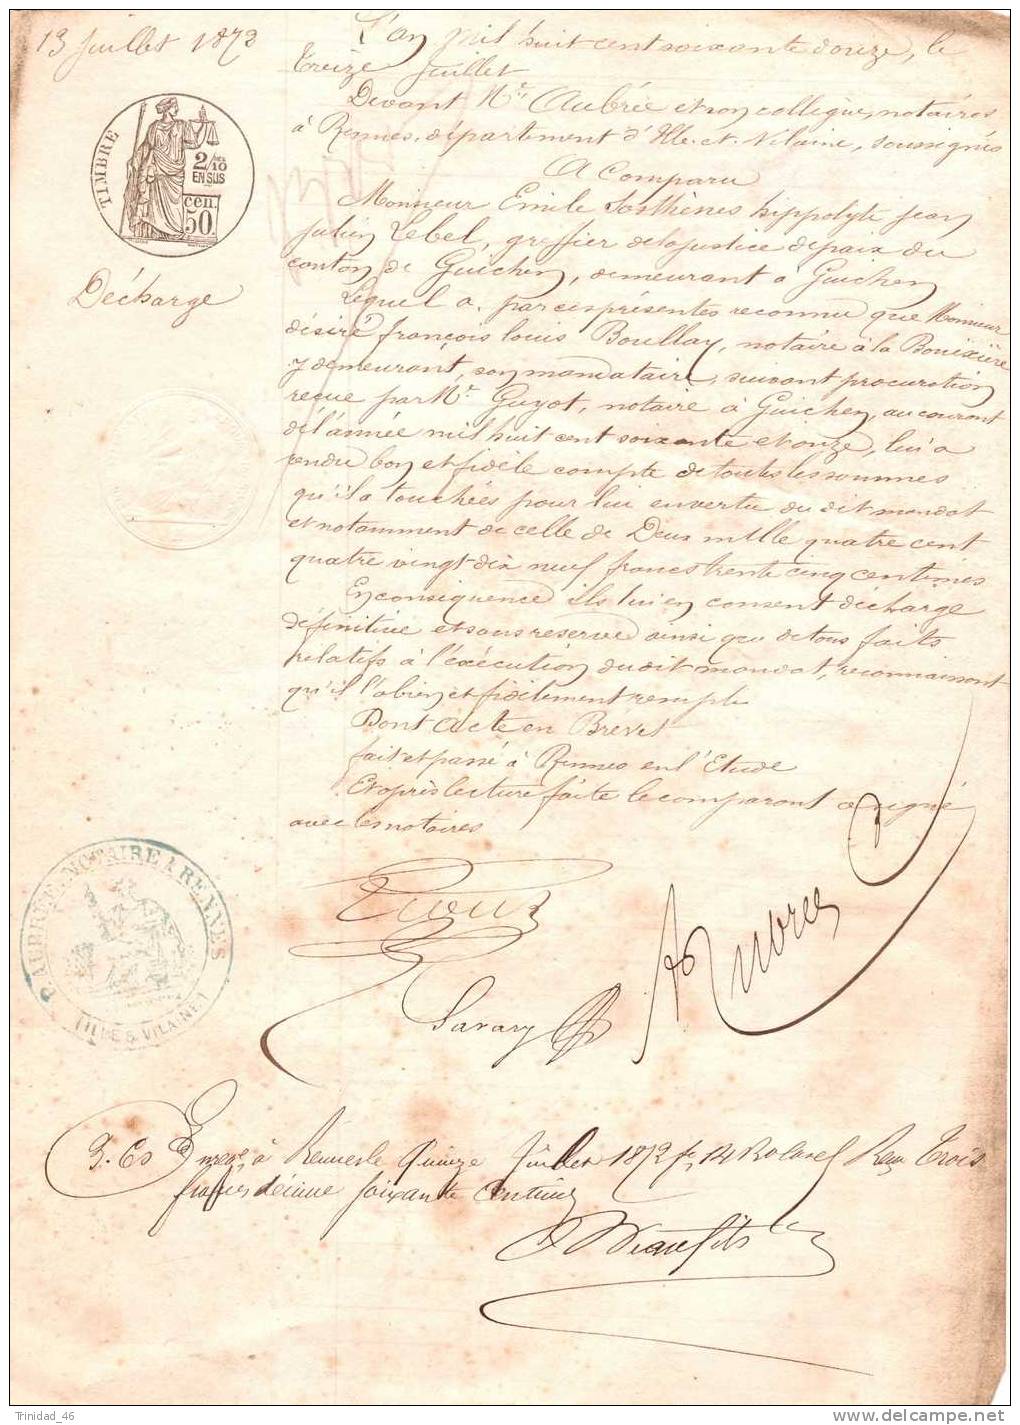 13 Juillet 1872
L'an mil huit cent soixante douze, le
treize Juillet
Devant Me Aubrée et son collègue, notaires
à Rennes, département d'Ille-et-Vilaine, soussignés
A Comparu
Monsieur Emile Sosthènes hippolyte jean
julien Lebel, greffier de la justice de paix du
canton de Guichen, demeurant à Guichen
Lequel a par ces présentes reconnu que Monsieur
désiré françois louis Boullay, notaire à la Bouixière
y demeurant, son mandataire, suivant procuration
reçue par Me Guyot, notaire à Guichen, au courant
de l'année mil huit cent soixante et onze, lui a
rendu bon et fidèle compte de toutes les sommes
qu'il a touchées pour lui en vertu du dit mandat
et notamment de celle de Deux mille quatre cent
quatre vingt dix neuf francs trente cinq centimes
En conséquence il lui en consent décharge
définitive et sans reserve ainsi que de tous faits
relatifs à l'exécution du dit mandat, reconnaissant
qu'il l'a bien et fidèlement rempli
Dont Acte en Brevet
fait et passé à Rennes en l'Etude
Et après lecture faite le comparant a signé
avec les notaires
TIMBRE
2/10
EN SUS
50 cen.
Décharge
AUBRÉE NOTAIRE A RENNES
(ILLE & VILAINE)
Aubrée
Savary
Enregé à Rennes le Quinze Juillet 1872 fo 14 Ro Reçu Trois
francs décime soixante centimes
Trinidad_46
delcampe.net